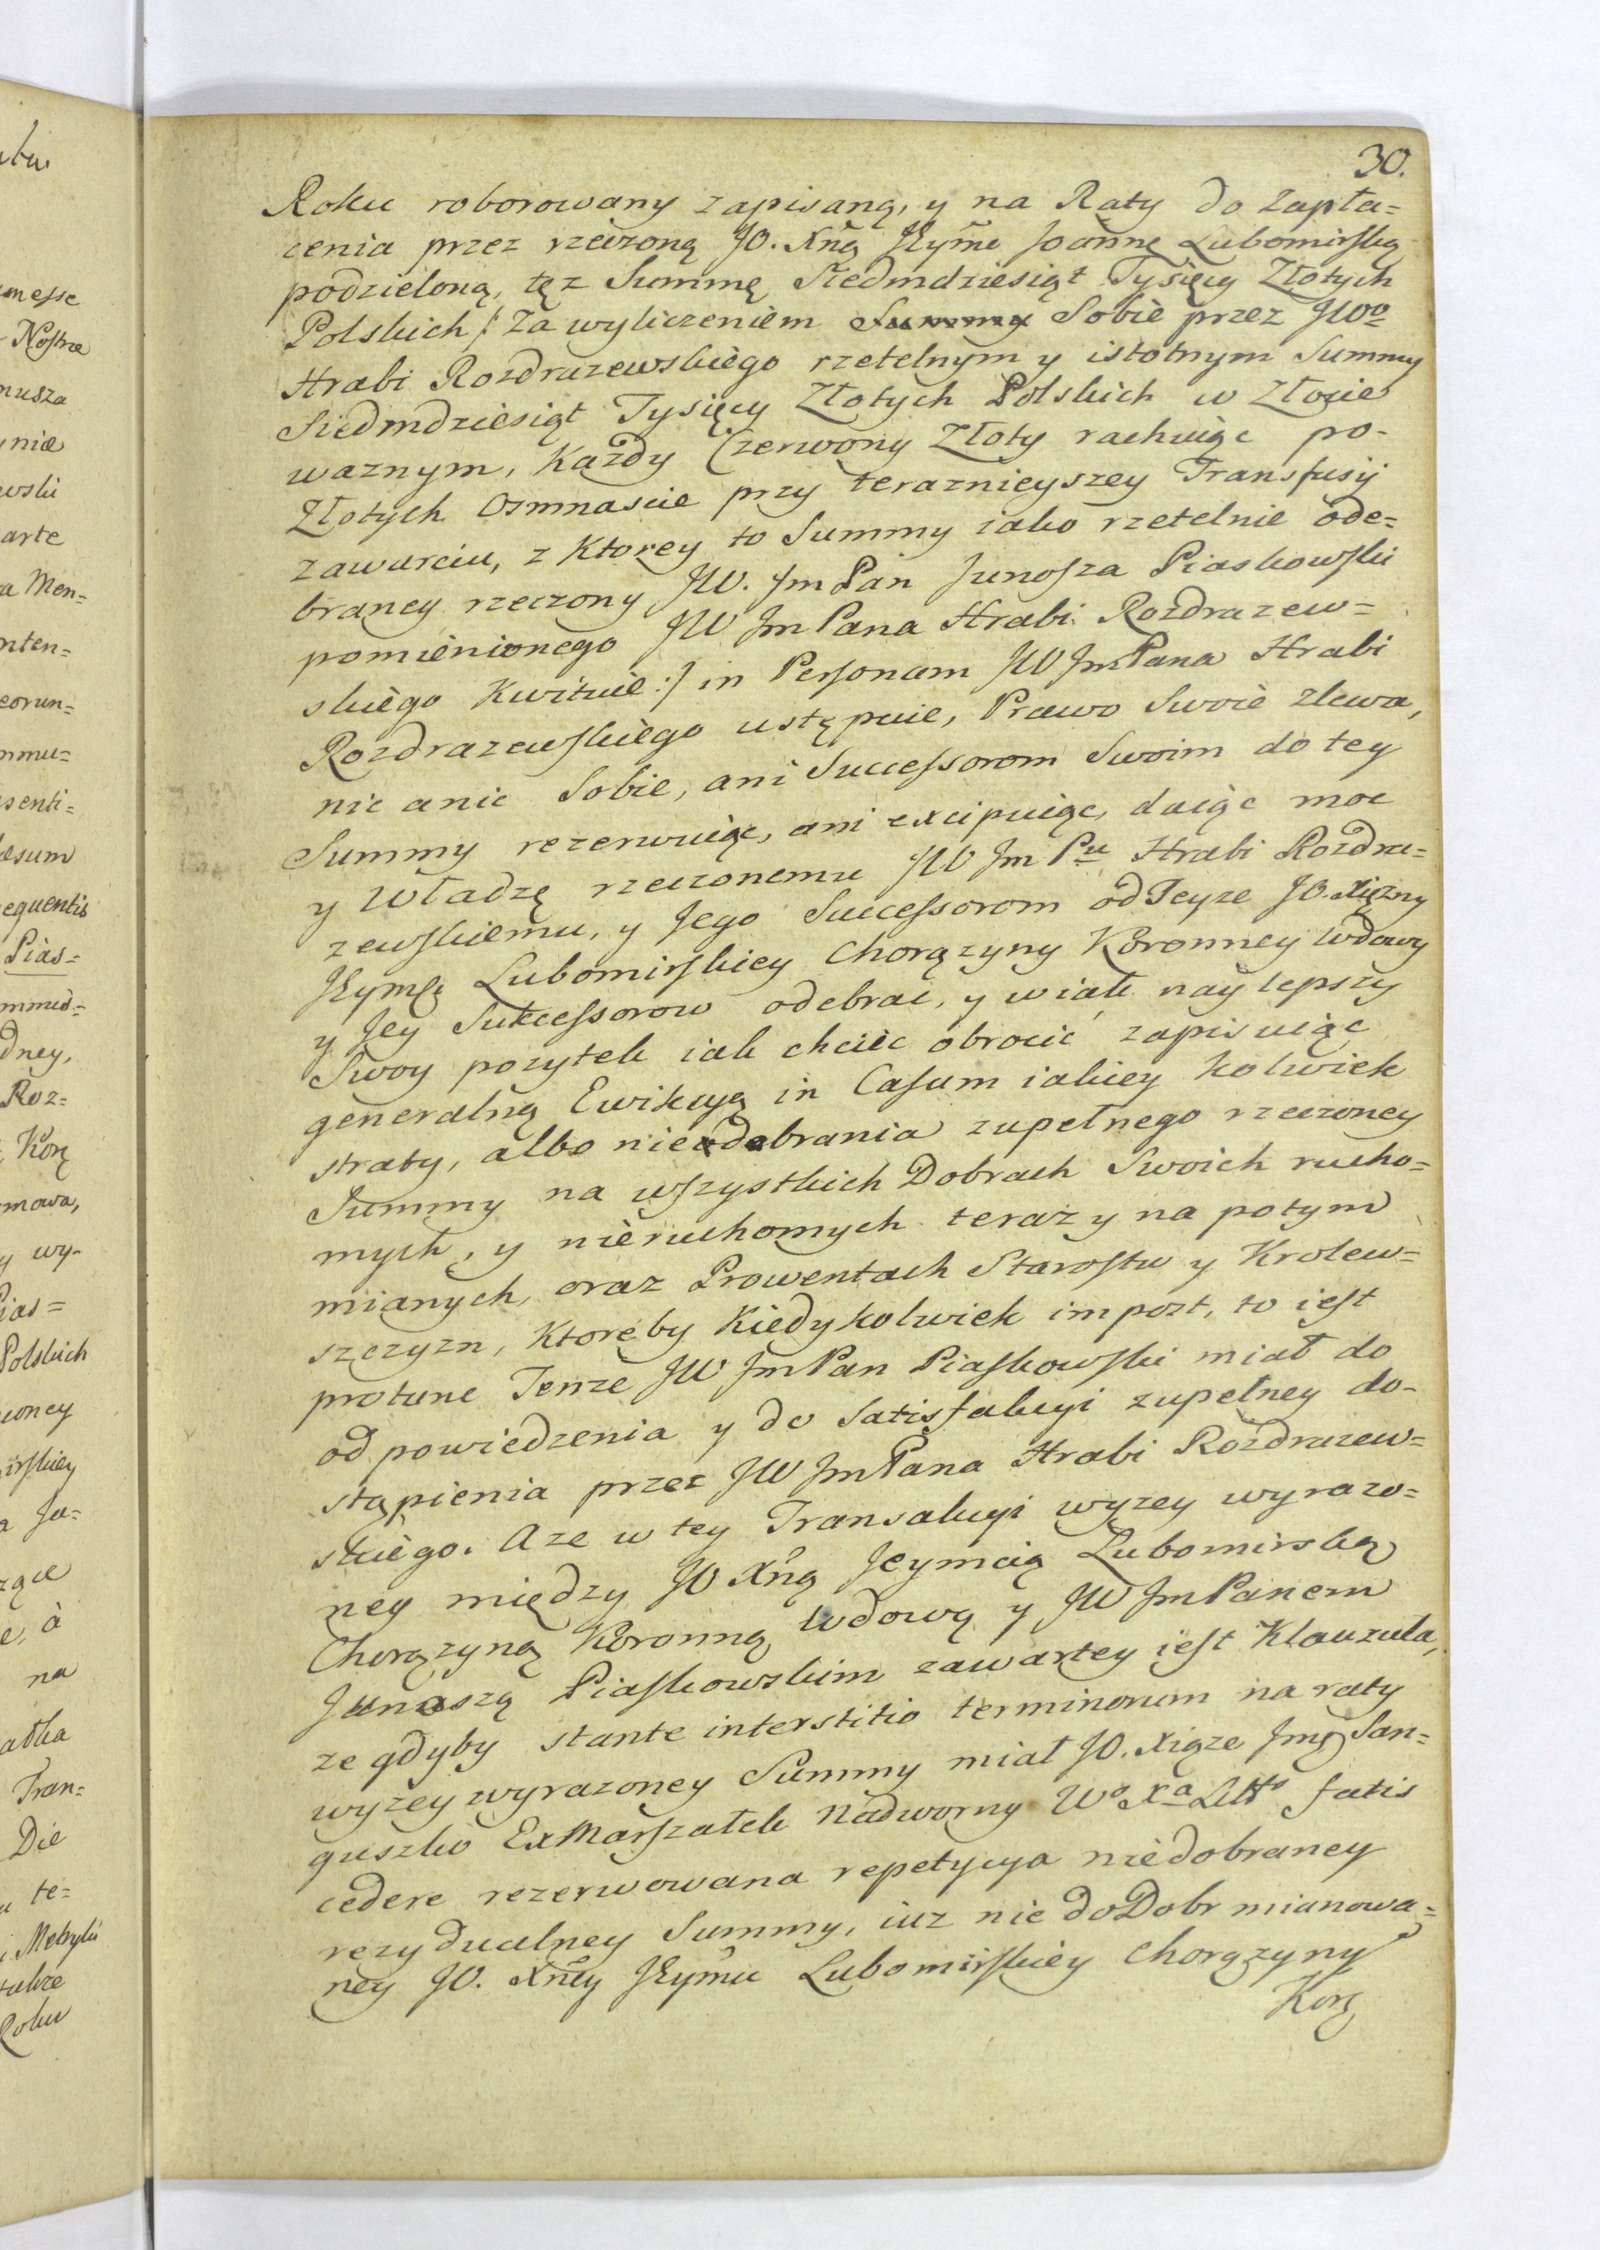 30.
Roku roborowany zapisaną, y na Raty do zapła=
cenia przez rzeczoną JO. Xnę Jeymć Joannę Lubomirską
podzieloną, tęz Summę Siedmdziesiąt Tysięcy Złotych
Polskich /: Za wyliczeniem Summy Sobie przez JWo
Hrabi Rozdrazewskiego rzetelnym y istotnym Summy
Siedmdziesiąt Tysięcy Złotych Polskich w Złocie
waznym, Kazdy Czerwony Złoty rachuiąc po-
Złotych Osmnascie przy teraznieyszey Transfusij
zawarciu, z Ktorey to Summy iako rzetelnie ode=
braney rzeczony JW. Jm Pan Junosza Piaskowski
pomienionego JW Jm Pana Hrabi Rozdrazew=
skiego Kwituie :/ in Personam JW Jm Pana Hrabi
Rozdrazewskiego ustępuie, Prawo Swoie zlewa,
nic a nic Sobie, ani Successorom Swoim do tey
Summy rezerwuiąc, ani excipuiąc, daiąc moc
y Władzę rzeczonemu JW Jm Pu Hrabi Rozdra=
zewskiemu, y Jego Successorom od Teyze JO. Xięzny
Jeymć Lubomirskiey Chorązyny Koronney Wdowy
y Jey Sukcessorow odebrać, y w iak naylepszy
Swoy pozytek iak chcieć obrocić zapisuiąc
generalną Ewikcyą in Casum iakiey kolwiek
straty, albo nieodebrania zupełnego rzeczoney
Summy na wszystkich Dobrach Swoich rucho=
mych, y nieruchomych teraz y na potym
mianych, oraz Prowentach Starostw y Krolew=
szczyzn, Ktoreby Kiedykolwiek im pozt, to iest
protunc Tenze JW Jm Pan Piaskowski miał do
odpowiedzenia y do Satisfakcyi zupełney do-
stąpienia przez JW Jm Pana Hrabi Rozdrazew=
skiego. A ze w tey Transakcyi wyzey wyrazo=
ney między JO Xną Jeymcią Lubomirską
Chorązyną Koronną Wdową y JW Jm Panem
Junoszą Piaskowskim zawartey iest Klauzula,
ze gdyby stante interstitio terminorum na raty
wyzey wyrazoney Summy miał JO. Xiąze Jmć San=
guszko Ex Marszałek Nadworny Wo Xa Litto satis
cedere rezerwowana repetycya niedobraney
rezydualney Summy, iuz nie do Dobr mianowa=
ney JO. Xney Jeymć Lubomirskiey Chorązyny
Korę